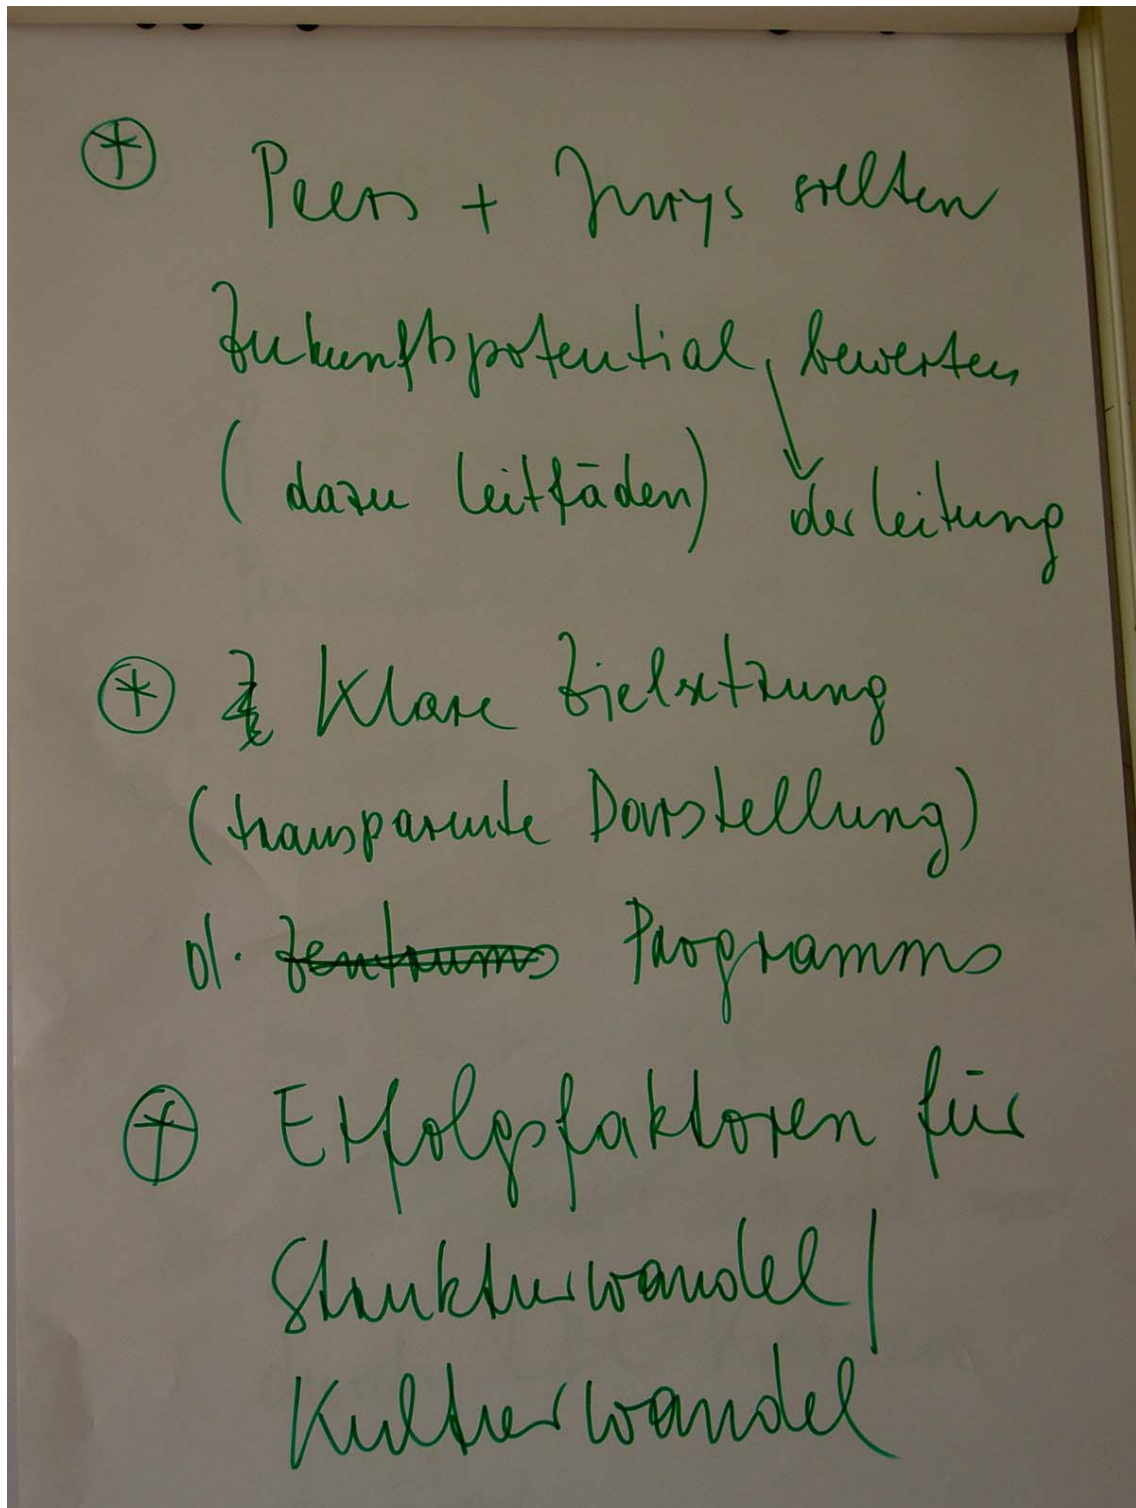 Peers + Jurys sollten
Zukunftspotential, bewerten
(dazu Leitfäden) der Leitung
Klare Zielsetzung
(transparente Darstellung)
d. Zentrums Programms
Erfolgsfaktoren für
Strukturwandel /
Kulturwandel